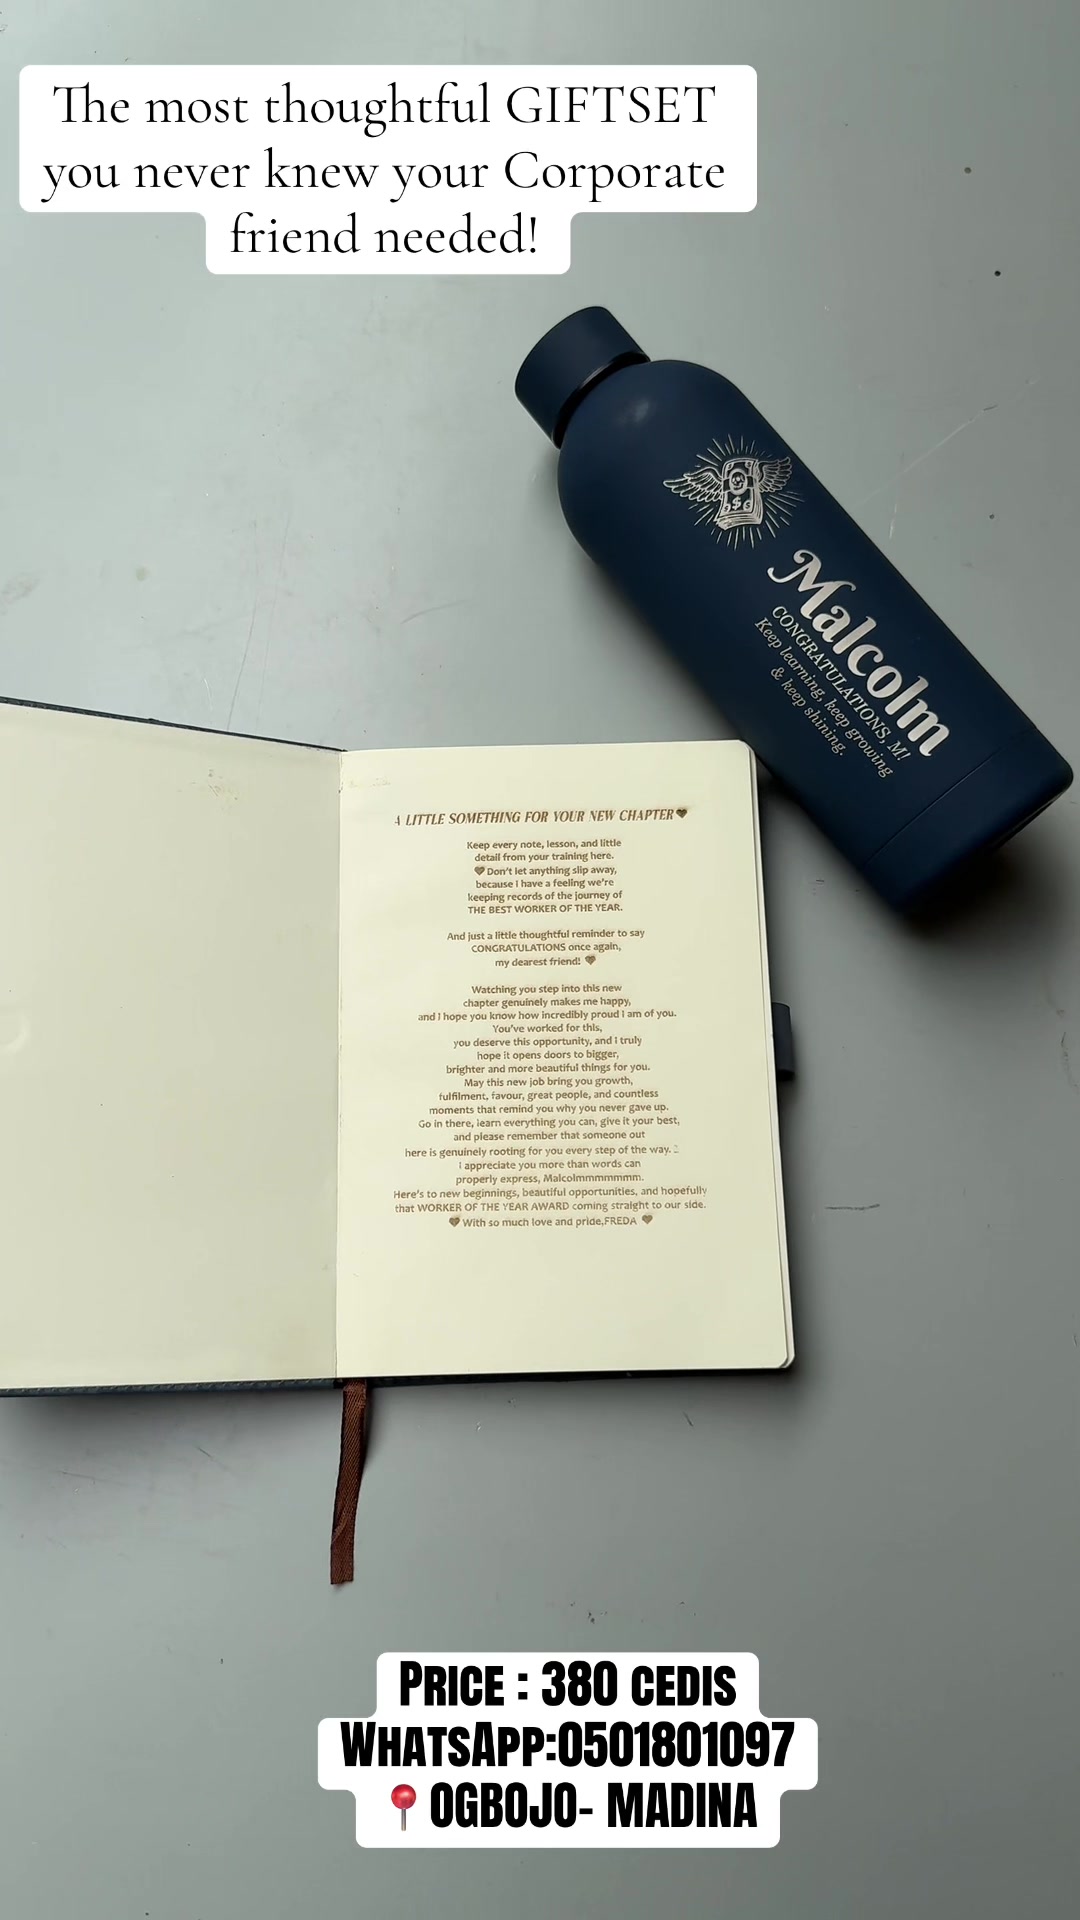 The most thoughtful GIFTSET
you never knew your Corporate
friend needed!
Malcolm
CONGRATULATIONS, M!
Keep learning, keep growing
& keep shining.
A LITTLE SOMETHING FOR YOUR NEW CHAPTER🖤
Keep every note, lesson, and little
detail from your training here.
🖤Don't let anything slip away,
because I have a feeling we're
keeping records of the journey of
THE BEST WORKER OF THE YEAR.
And just a little thoughtful reminder to say
CONGRATULATIONS once again,
my dearest friend! 🖤
Watching you step into this new
chapter genuinely makes me happy,
and I hope you know how incredibly proud I am of you.
You've worked for this,
you deserve this opportunity, and I truly
hope it opens doors to bigger,
brighter and more beautiful things for you.
May this new job bring you growth,
fulfilment, favour, great people, and countless
moments that remind you why you never gave up.
Go in there, learn everything you can, give it your best,
and please remember that someone out
here is genuinely rooting for you every step of the way.
I appreciate you more than words can
properly express, Malcolmmmmmmm.
Here's to new beginnings, beautiful opportunities, and hopefully
that WORKER OF THE YEAR AWARD coming straight to our side.
🖤 With so much love and pride,FREDA 🖤
PRICE : 380 CEDIS
WHATSAPP:0501801097
📍OGBOJO- MADINA